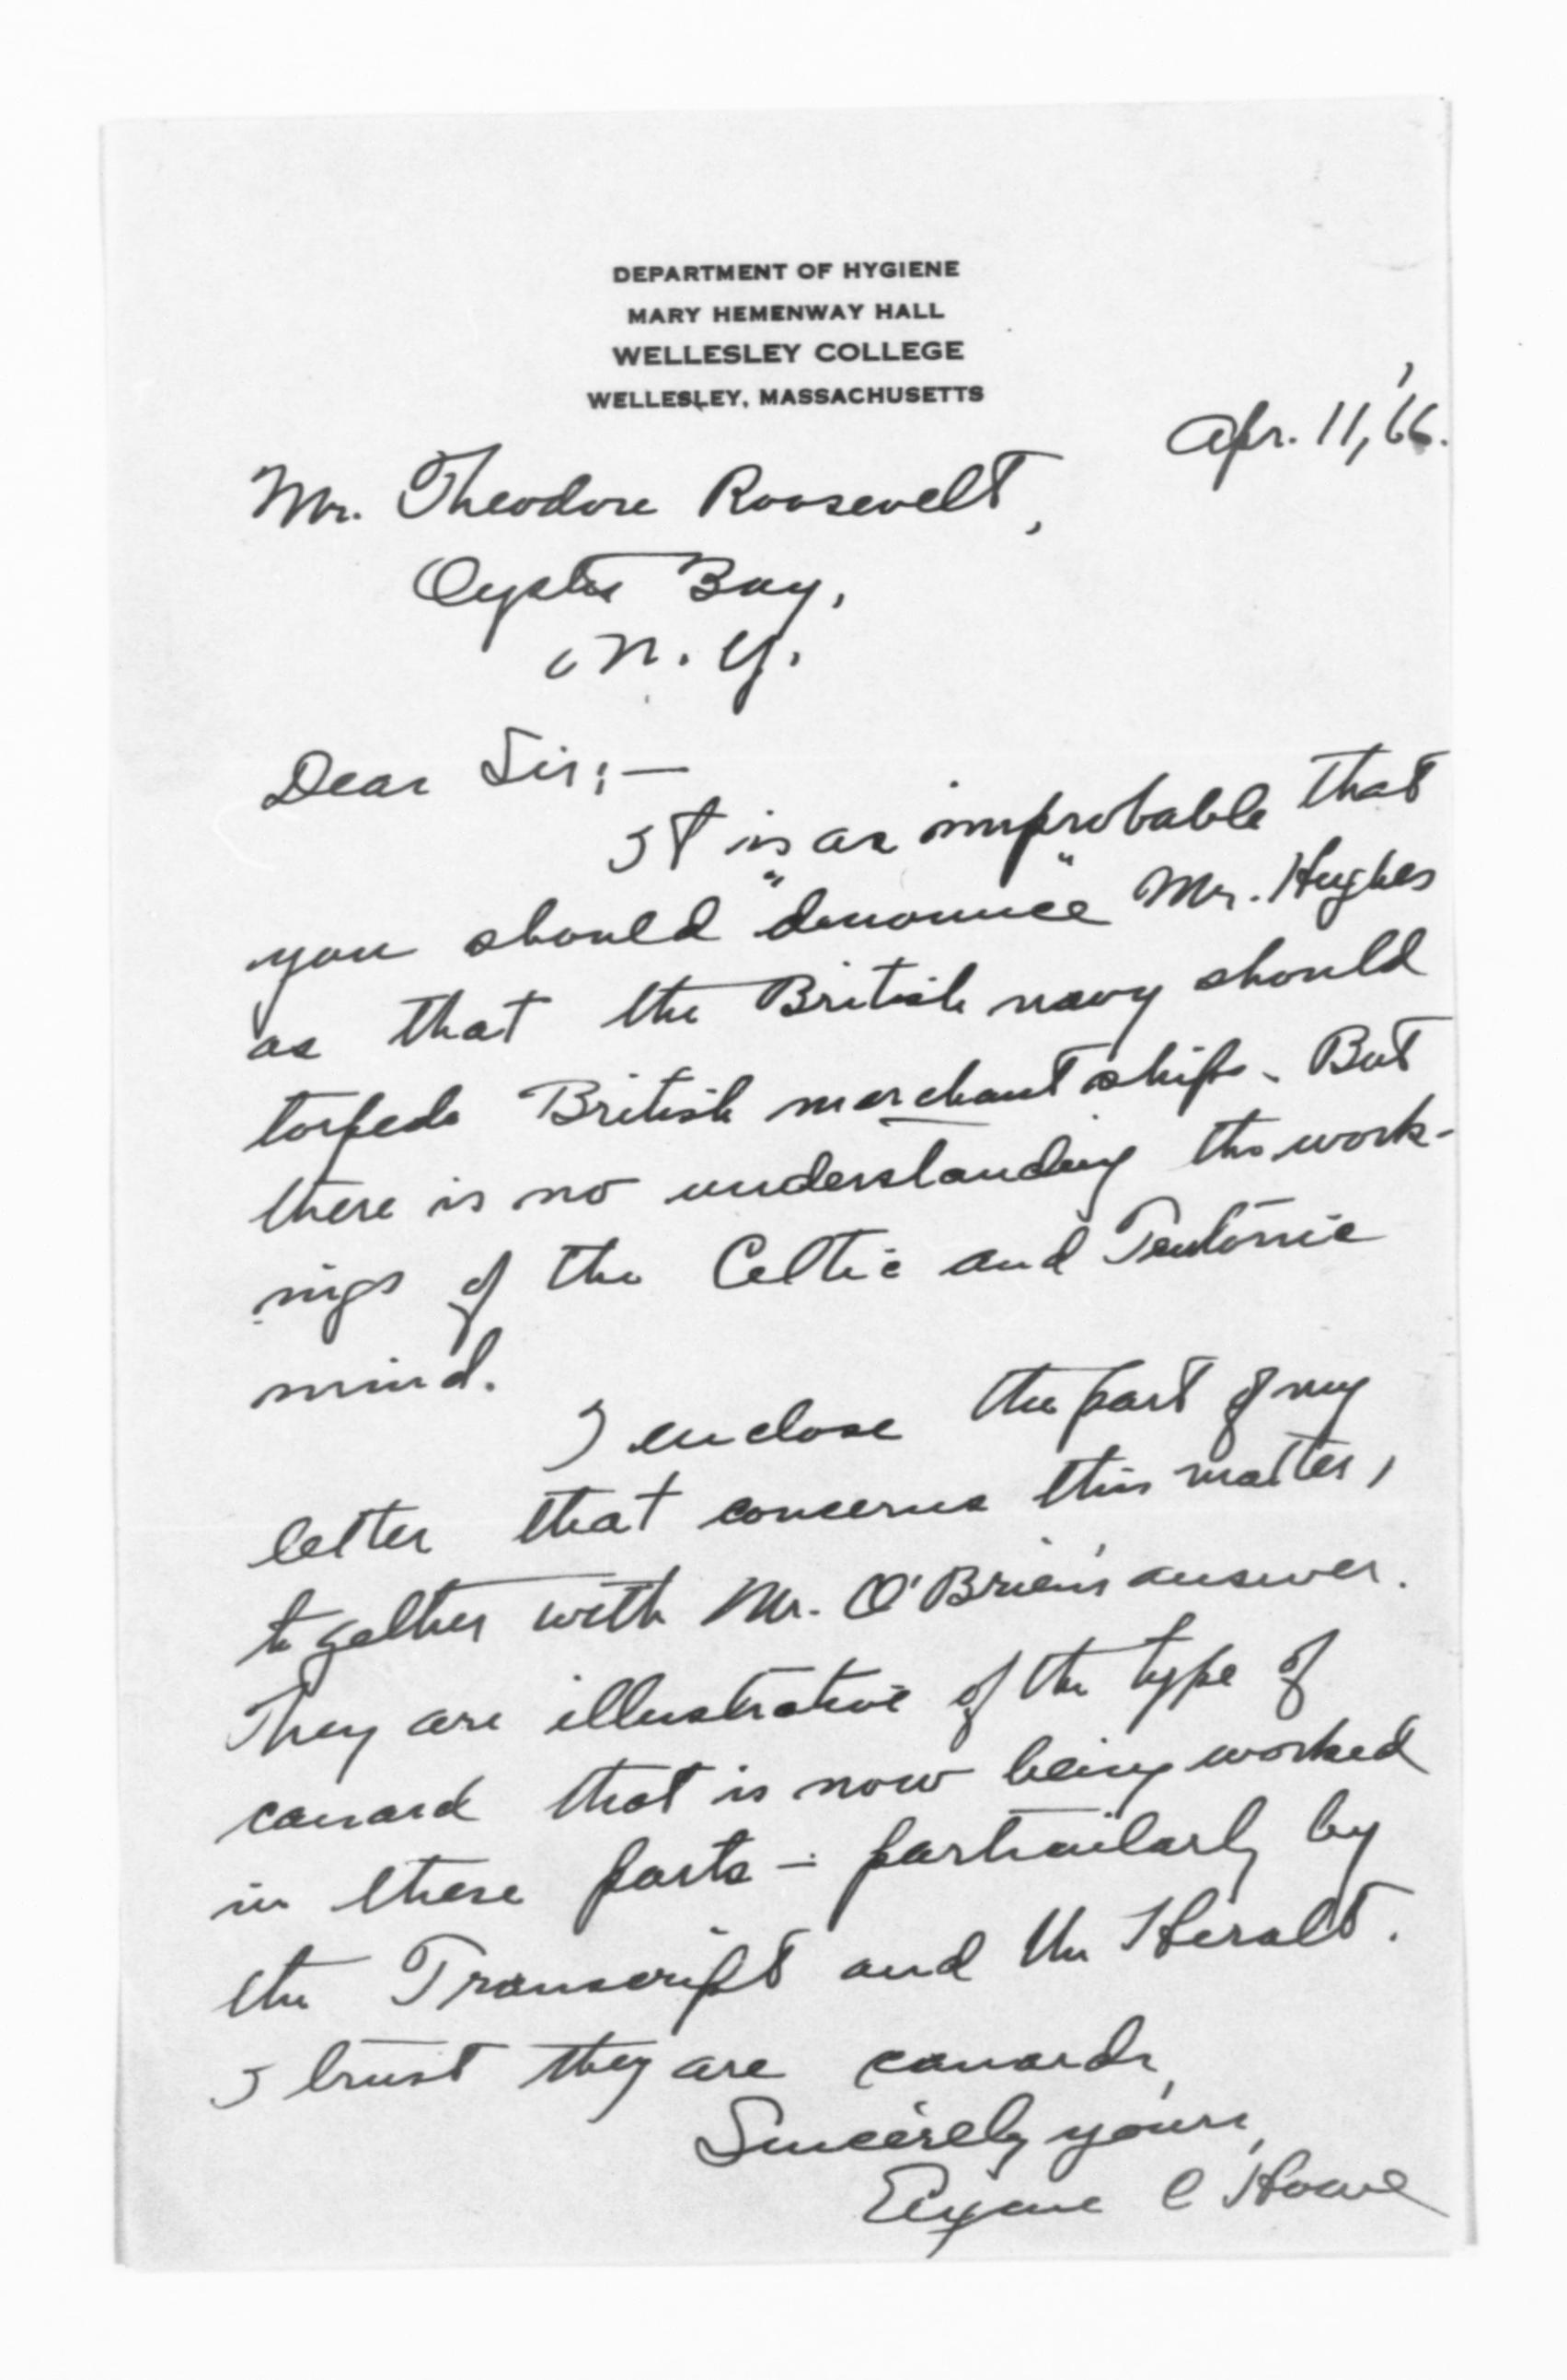 DEPARTMENT OF HYGIENE
MARY HEMENWAY HALL
WELLESLEY COLLEGE
WELLESLEY, MASSACHUSETTS
Apr. 11, '16.
Mr. Theodore Roosevelt,
Oyster Bay,
N. Y.
Dear Sir:—
It is as improbable that
you should "denounce" Mr. Hughes
as that the British navy should
torpedo British merchant ships. But
there is no understanding the work-
ings of the Celtic and Teutonic
mind.
I enclose the part of my
letter that concerns this matter,
together with Mr. O'Brien's answer.
They are illustrative of the type of
canard that is now being worked
in these parts – particularly by
the Transcript and the Herald.
I trust they are canards.
Sincerely yours,
Eugene C Howe